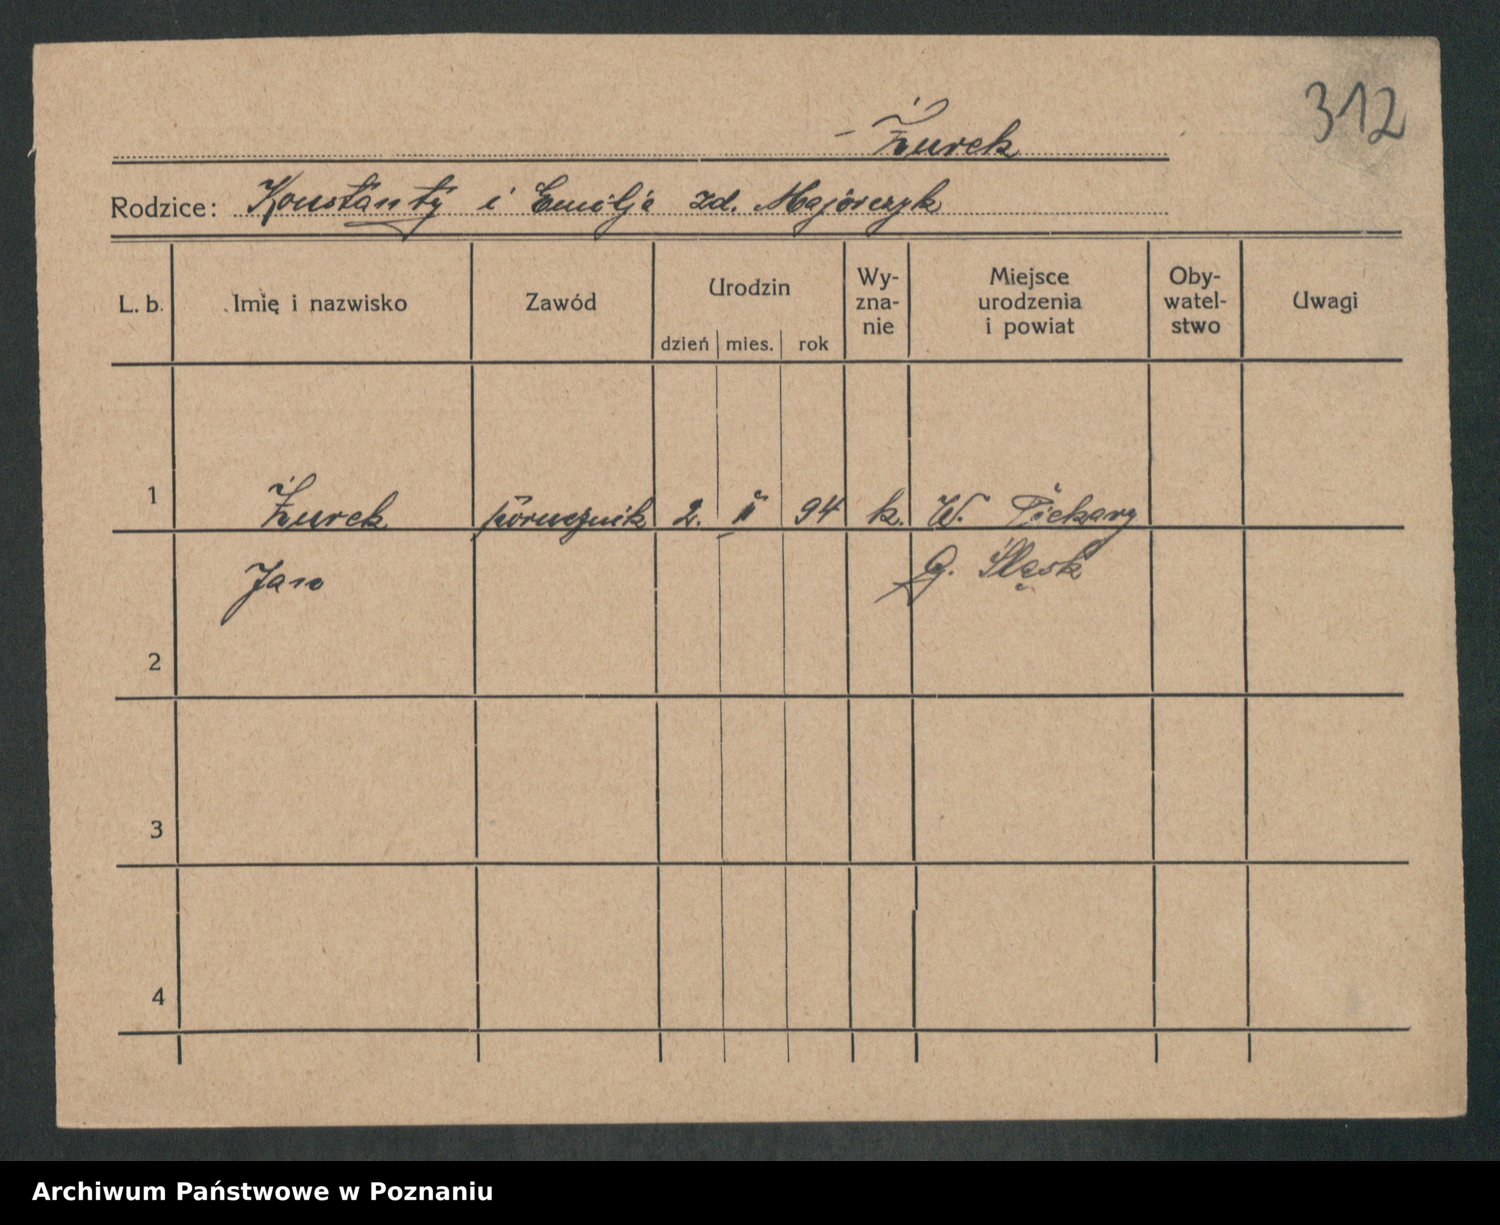 312
Żurek
Rodzice: Konstanty i Emilja zd. Majórczyk
L. b. Imię i nazwisko Zawód Urodzin dzień mies. rok Wy-zna-nie Miejsce urodzenia i powiat Oby-watel-stwo Uwagi
1 Żurek porucznik 2. II 94 k. W. Piekary
Jan G. Śląsk
2
3
4
Archiwum Państwowe w Poznaniu